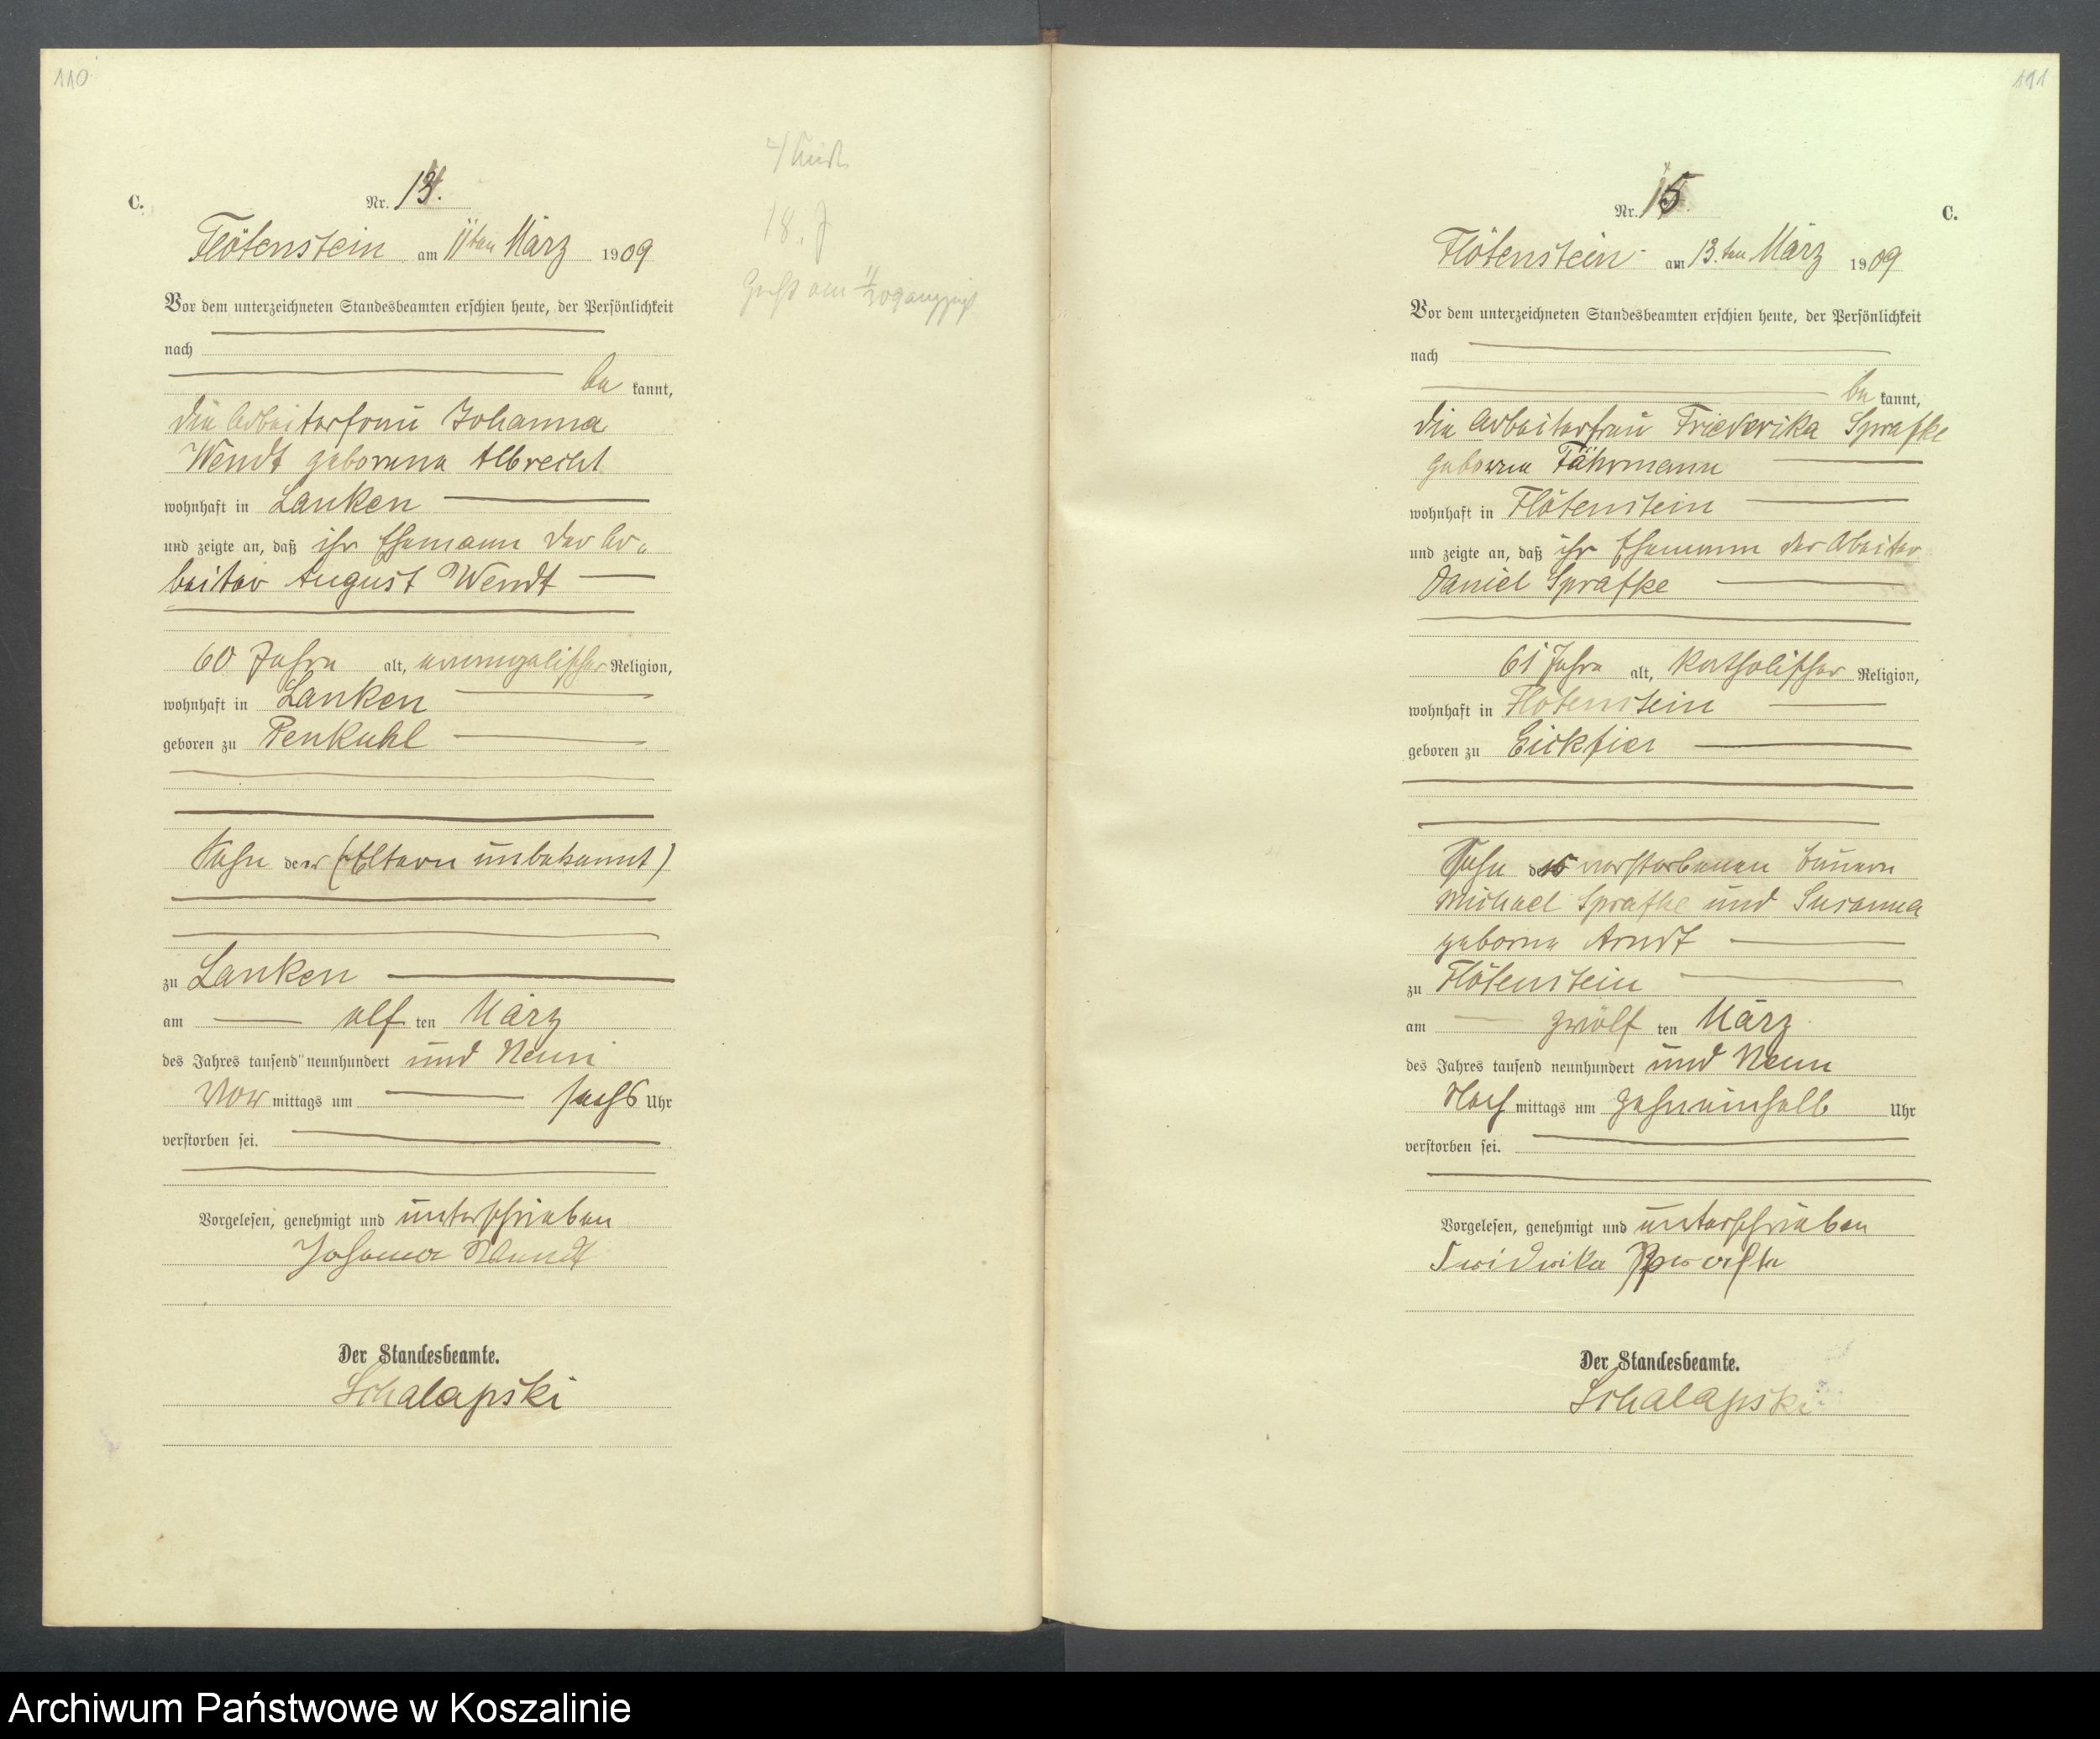 110
C.
Nr. 14.
Flötenstein am 11ten März 1909
Vor dem unterzeichneten Standesbeamten erschien heute, der Persönlichkeit
nach
be kannt,
die Arbeiterfrau Johanna
Wendt geborene Albrecht
wohnhaft in Lanken
und zeigte an, daß ihr Ehemann der Ar-
beiter August Wendt
60 Jahre alt, evangelischer Religion,
wohnhaft in Lanken
geboren zu Penkuhl
Sohn der (Eltern unbekannt)
zu Lanken
am elf ten März
des Jahres tausend neunhundert und Neun
Vor mittags um sechs Uhr
verstorben sei.
Vorgelesen, genehmigt und unterschrieben
Johanna Wendt
Der Standesbeamte.
Schalapski
18. J
111
C.
Nr. 15.
Flötenstein am 13.ten März 1909
Vor dem unterzeichneten Standesbeamten erschien heute, der Persönlichkeit
nach
be kannt,
die Arbeiterfrau Friederika Sprafke
geborne Fährmann
wohnhaft in Flötenstein
und zeigte an, daß ihr Ehemann der Abeiter
Daniel Sprafke
61 Jahre alt, katholischer Religion,
wohnhaft in Flötenstein
geboren zu Eickfier
Sohn des verstorbenen Bauern
Michael Sprafke und Susanna
geborne Arndt
zu Flötenstein
am zwölf ten März
des Jahres tausend neunhundert und Neun
Nach mittags um zehneinhalb Uhr
verstorben sei.
Vorgelesen, genehmigt und unterschrieben
Der Standesbeamte.
Schalapski
Archiwum Państwowe w Koszalinie